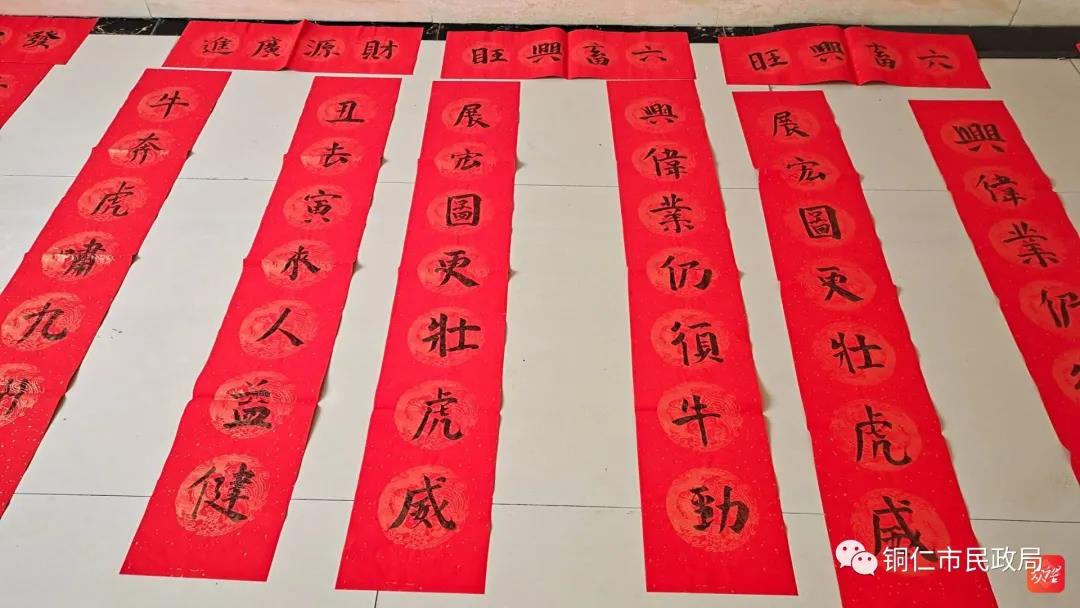 發
財源廣進
六畜興旺
六畜興旺
牛奔虎嘯九
丑去寅来人益健
展宏圖更壯虎威
興偉業仍須牛勁
展宏圖更壯虎威
興偉業仍
铜仁市民政局